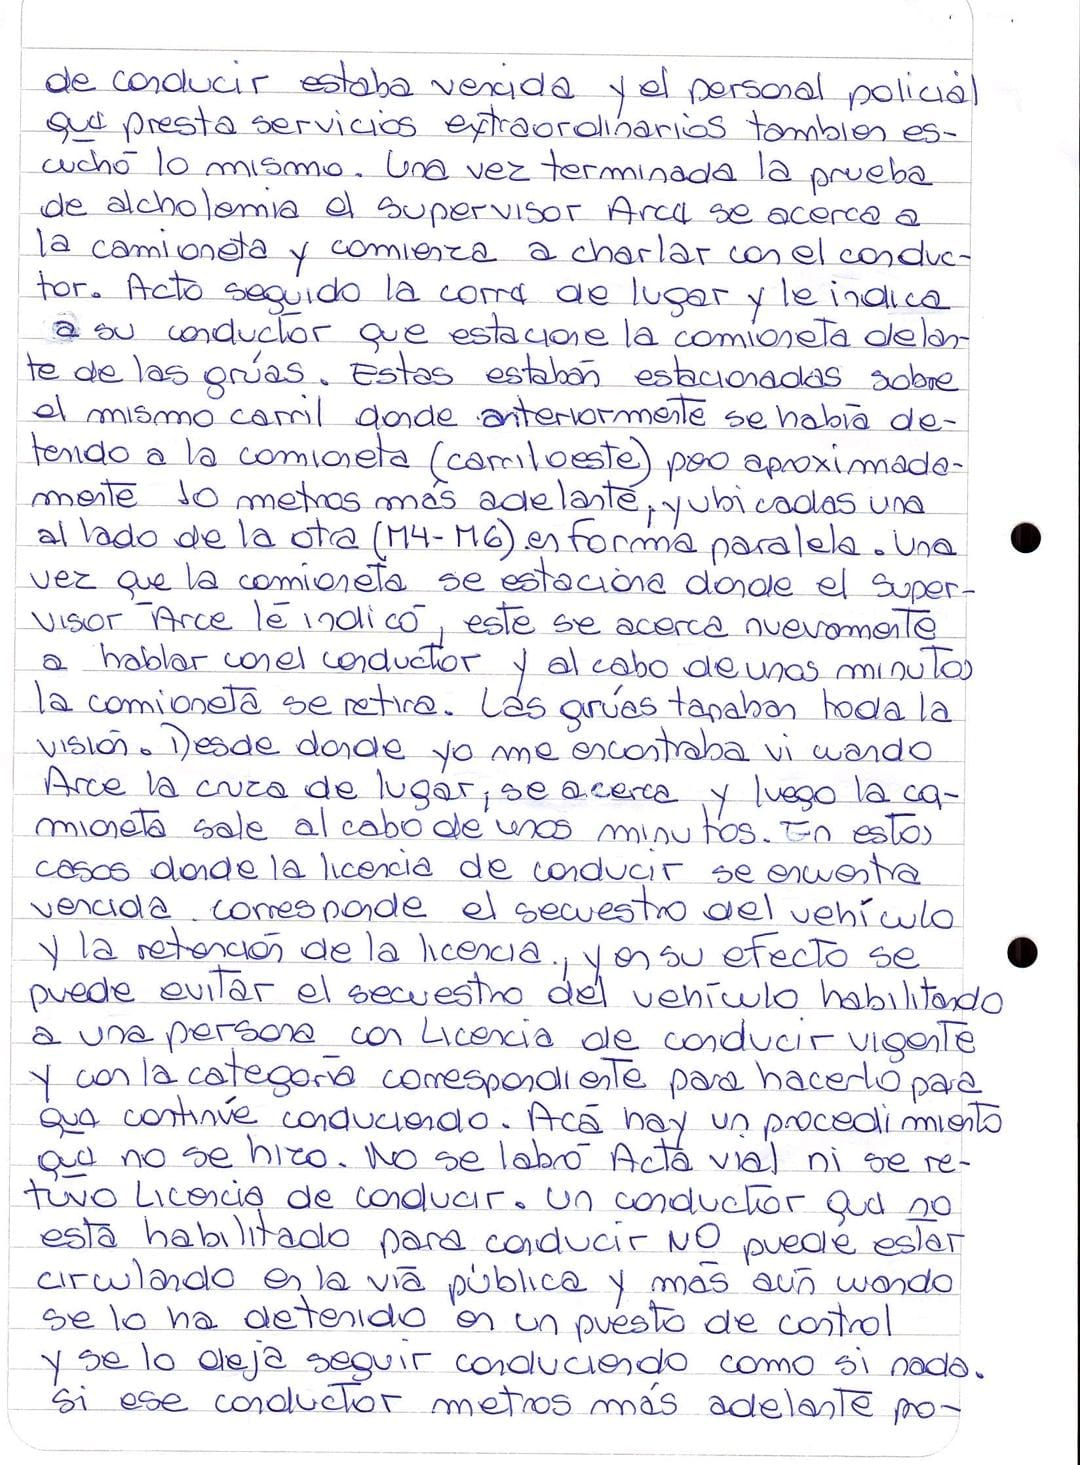 de conducir estaba vencida y el personal policial
que presta servicios extraordinarios tambien es-
cuchó lo mismo. Una vez terminada la prueba
de alcholemia el supervisor Arce se acerca a
la camioneta y comienza a charlar con el conduc-
tor. Acto seguido la corre de lugar y le indica
a su conductor que estacione la camioneta delan-
te de las grúas. Estas estaban estacionadas sobre
el mismo carril donde anteriormente se había de-
tenido a la camioneta (carril oeste) pero aproximada-
mente 10 metros más adelante, y ubicadas una
al lado de la otra (M4-M6) en forma paralela. Una
vez que la camioneta se estaciona donde el super-
visor Arce le indicó, este se acerca nuevamente
a hablar con el conductor y al cabo de unos minutos
la camioneta se retira. Las grúas tapaban toda la
visión. Desde donde yo me encontraba vi cuando
Arce la cruza de lugar, se acerca y luego la ca-
mioneta sale al cabo de unos minutos. En estos
casos donde la licencia de conducir se encuentra
vencida corresponde el secuestro del vehículo
y la retención de la licencia, y en su efecto se
puede evitar el secuestro del vehículo habilitando
a una persona con Licencia de conducir vigente
y con la categoría correspondiente para hacerlo para
que continúe conduciendo. Acá hay un procedimiento
que no se hizo. No se labró Acta vial ni se re-
tuvo Licencia de conducir. Un conductor que no
está habilitado para conducir NO puede estar
circulando en la vía pública y más aún cuando
se lo ha detenido en un puesto de control
y se lo deja seguir conduciendo como si nada.
Si ese conductor metros más adelante pro-